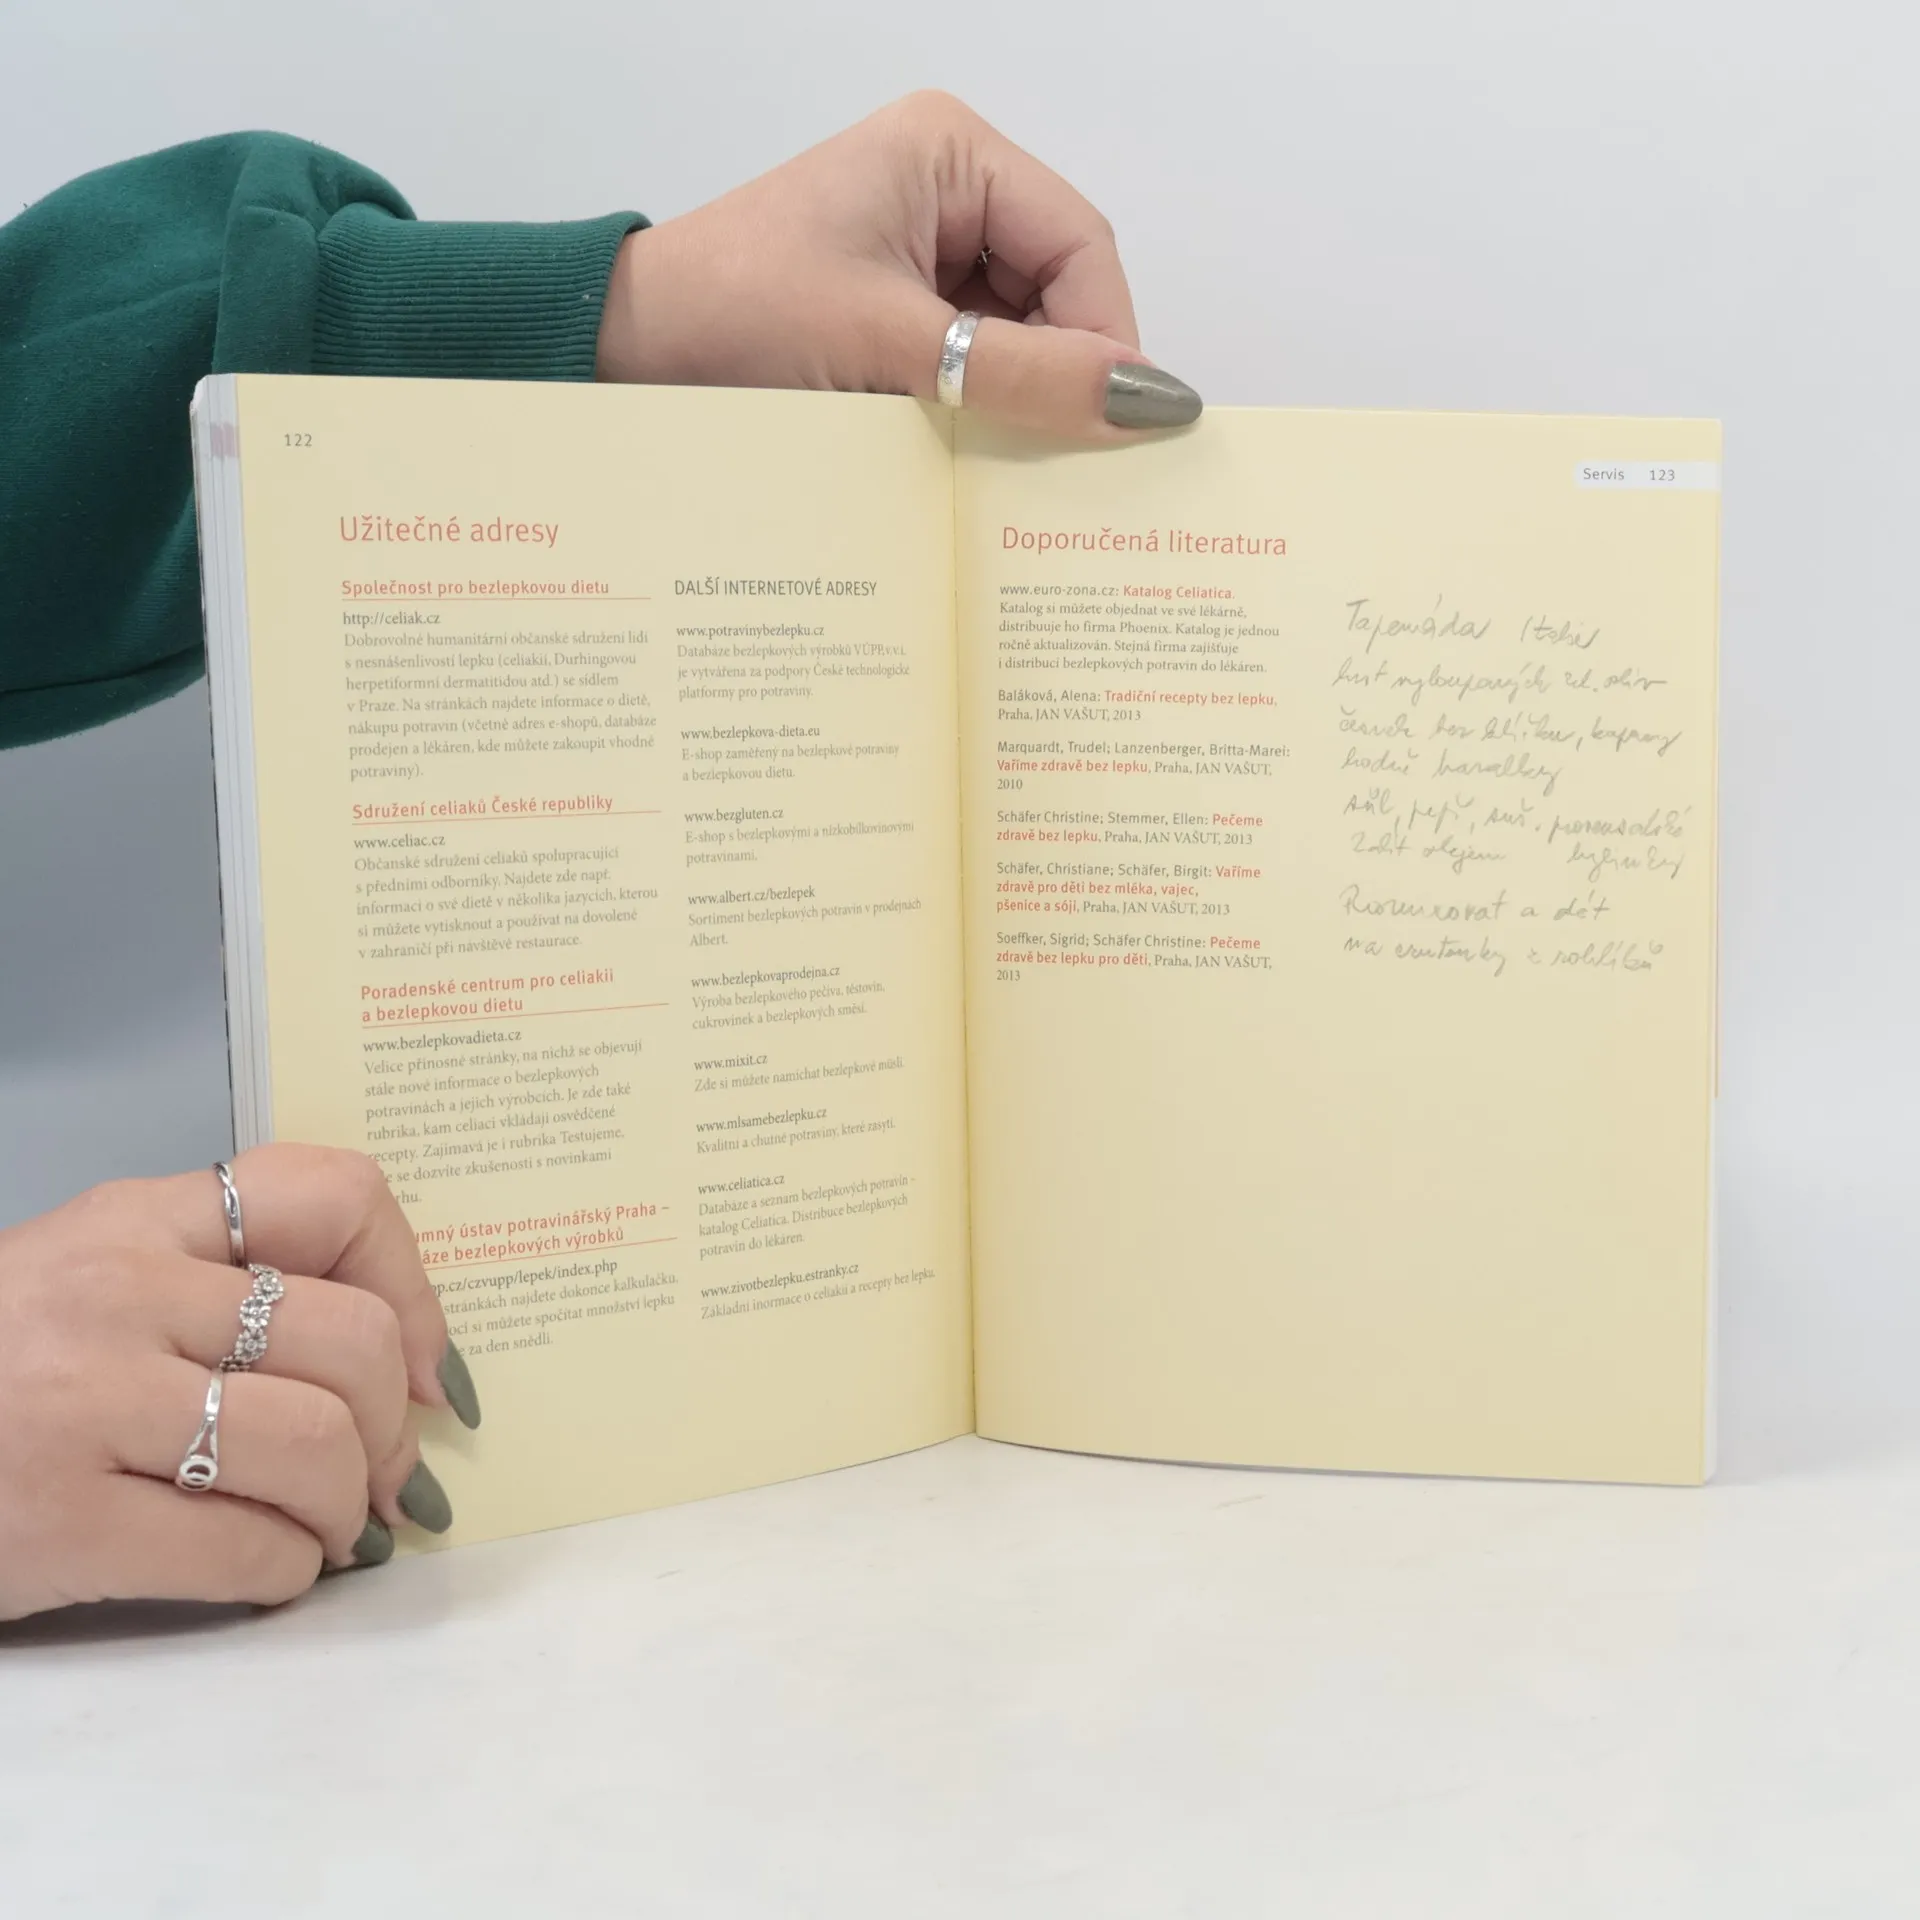 122
Užitečné adresy
Společnost pro bezlepkovou dietu
http://celiak.cz
Dobrovolné humanitární občanské sdružení lidí
s nesnášenlivostí lepku (celiakií, Durhingovou
herpetiformní dermatitidou atd.) se sídlem
v Praze. Na stránkách najdete informace o dietě,
nákupu potravin (včetně adres e-shopů, databáze
prodejen a lékáren, kde můžete zakoupit vhodné
potraviny).
Sdružení celiaků České republiky
www.celiac.cz
Občanské sdružení celiaků spolupracující
s předními odborníky. Najdete zde např.
informaci o své dietě v několika jazycích, kterou
si můžete vytisknout a používat na dovolené
v zahraničí při návštěvě restaurace.
Poradenské centrum pro celiakii
a bezlepkovou dietu
www.bezlepkovadieta.cz
Velice přínosné stránky, na nichž se objevují
stále nové informace o bezlepkových
potravinách a jejich výrobcích. Je zde také
rubrika, kam celiaci vkládají osvědčené
recepty. Zajímavá je i rubrika Testujeme,
e se dozvíte zkušenosti s novinkami
rhu.
umný ústav potravinářský Praha –
áze bezlepkových výrobků
pp.cz/czvupp/lepek/index.php
stránkách najdete dokonce kalkulačku,
ocí si můžete spočítat množství lepku
e za den snědli.
DALŠÍ INTERNETOVÉ ADRESY
www.potravinybezlepku.cz
Databáze bezlepkových výrobků VÚPP,v.v.i.
je vytvářena za podpory České technologické
platformy pro potraviny.
www.bezlepkova-dieta.eu
E-shop zaměřený na bezlepkové potraviny
a bezlepkovou dietu.
www.bezgluten.cz
E-shop s bezlepkovými a nízkobílkovinovými
potravinami.
www.albert.cz/bezlepek
Sortiment bezlepkových potravin v prodejnách
Albert.
www.bezlepkovaprodejna.cz
Výroba bezlepkového pečiva, těstovin,
cukrovinek a bezlepkových směsí.
www.mixit.cz
Zde si můžete namíchat bezlepkové müsli.
www.mlsamebezlepku.cz
Kvalitní a chutné potraviny, které zasytí.
www.celiatica.cz
Databáze a seznam bezlepkových potravin –
katalog Celiatica. Distribuce bezlepkových
potravin do lékáren.
www.zivotbezlepku.estranky.cz
Základní inormace o celiakii a recepty bez lepku.
Servis 123
Doporučená literatura
www.euro-zona.cz: Katalog Celiatica.
Katalog si můžete objednat ve své lékárně,
distribuuje ho firma Phoenix. Katalog je jednou
ročně aktualizován. Stejná firma zajišťuje
i distribuci bezlepkových potravin do lékáren.
Baláková, Alena: Tradiční recepty bez lepku,
Praha, JAN VAŠUT, 2013
Marquardt, Trudel; Lanzenberger, Britta-Marei:
Vaříme zdravě bez lepku, Praha, JAN VAŠUT,
2010
Schäfer Christine; Stemmer, Ellen: Pečeme
zdravě bez lepku, Praha, JAN VAŠUT, 2013
Schäfer, Christiane; Schäfer, Birgit: Vaříme
zdravě pro děti bez mléka, vajec,
pšenice a sóji, Praha, JAN VAŠUT, 2013
Soeffker, Sigrid; Schäfer Christine: Pečeme
zdravě bez lepku pro děti, Praha, JAN VAŠUT,
2013
Tapenáda
vyloupaných zel. oliv
česnek bez klíčku, kapary
hodně bazalky
sůl, pepř, suš. provensálské
Zalít olejem bylinky
Rozmixovat a dát
na croutonky z rohlíků